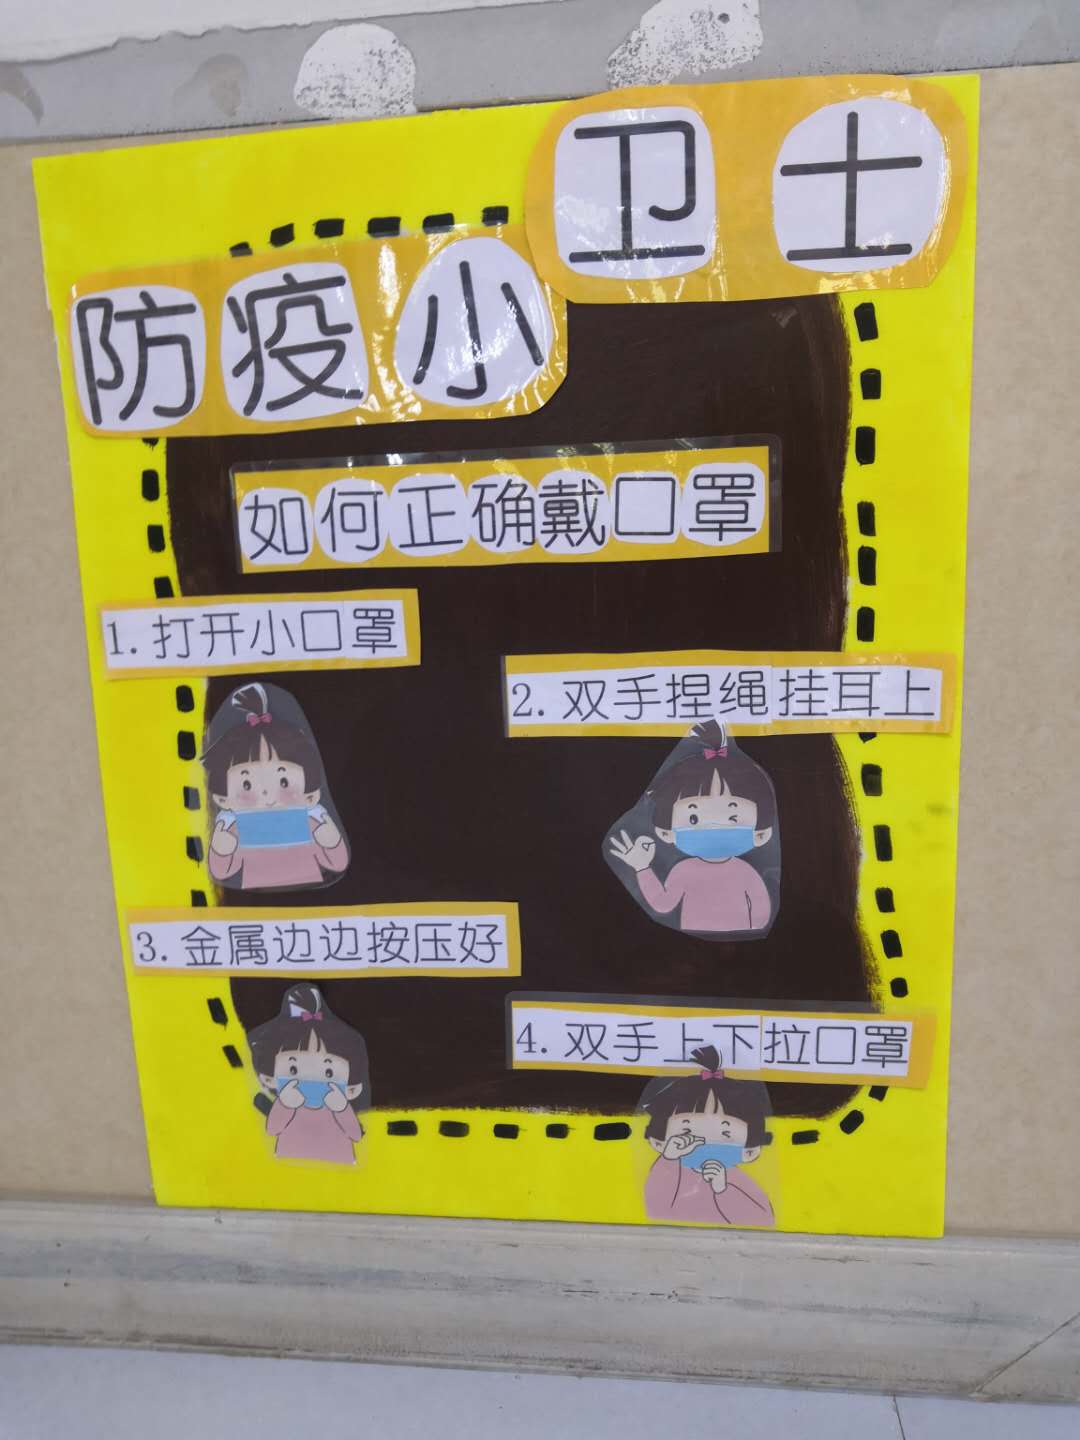 防疫小卫士
如何正确戴口罩
1.打开小口罩
2.双手捏绳挂耳上
3.金属边边按压好
4.双手上下拉口罩